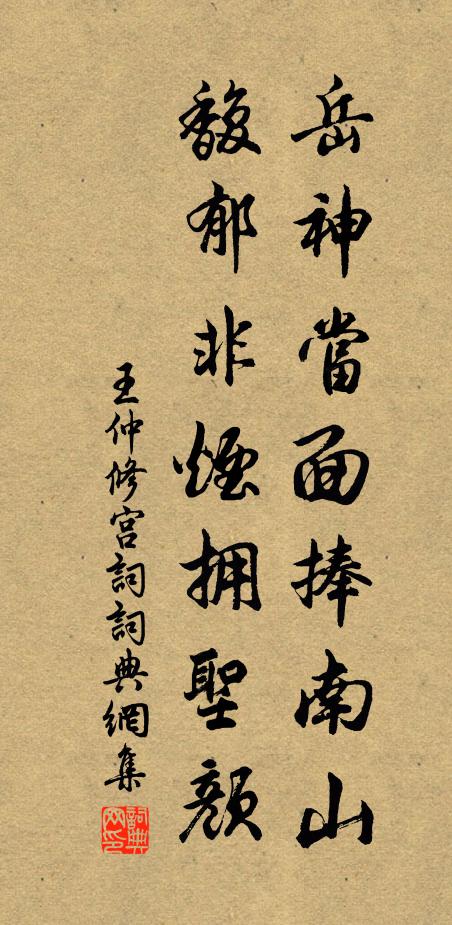 岳神當面捧南山
馥郁非煙擁聖顏
王仲修宮詞詞典網集
詞典網印